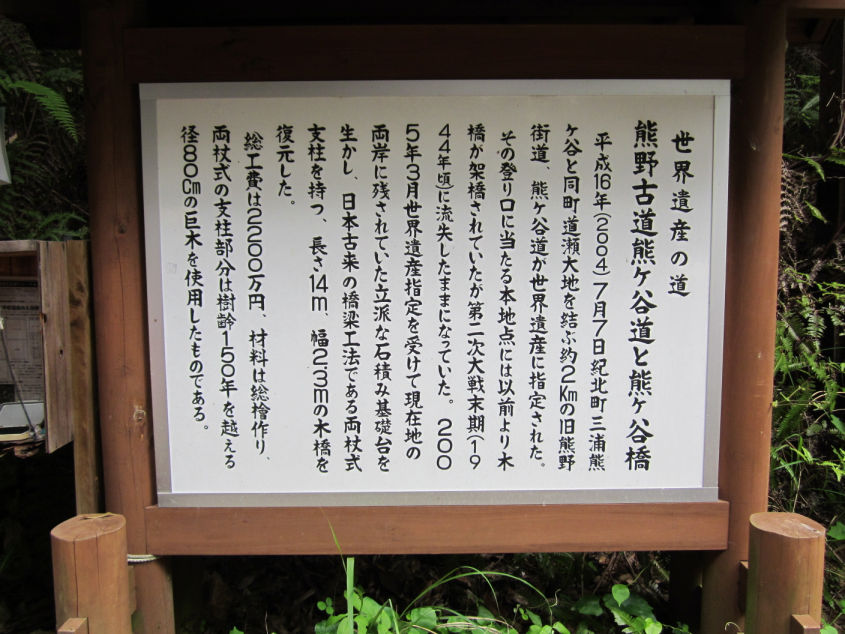 世界遺産の道
熊野古道熊ヶ谷道と熊ヶ谷橋
平成16年(2004)7月7日紀北町三浦熊
ヶ谷と同町道瀬大地を結ぶ約2Kmの旧熊野
街道、熊ヶ谷道が世界遺産に指定された。
その登り口に当たる本地点には以前より木
橋が架橋されていたが第二次大戦末期(19
44年頃)に流失したままになっていた。200
5年3月世界遺産指定を受けて現在地の
両岸に残されていた立派な石積み基礎台を
生かし、日本古来の橋梁工法である両杖式
支柱を持つ、長さ14m、幅2.3mの木橋を
復元した。
総工費は2200万円、材料は総檜作り、
両杖式の支柱部分は樹齢150年を越える
径80Cmの巨木を使用したものである。